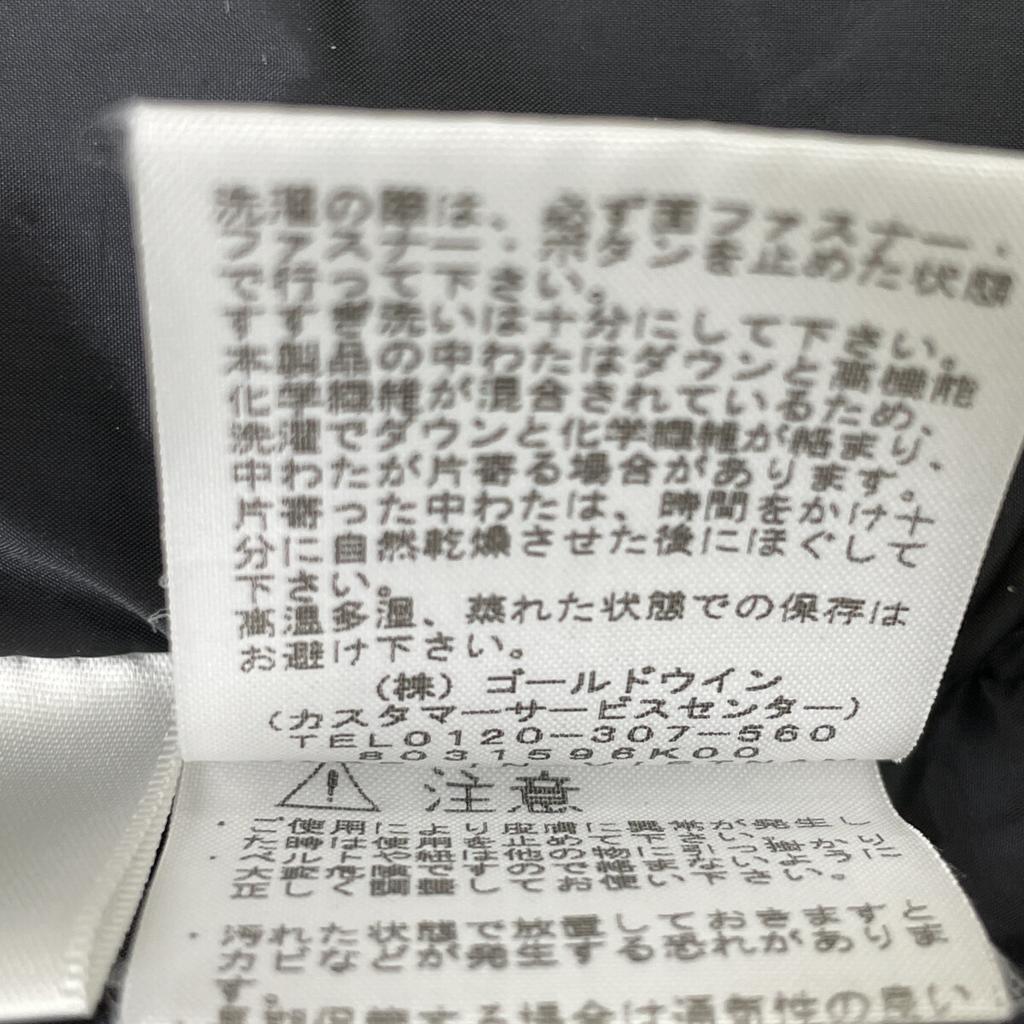 洗濯の際は、必ず面ファスナー・
ファスナー・ボタンを止めた状態
で行って下さい。
すすぎ洗いは十分にして下さい。
本製品の中わたはダウンと高機能
化学繊維が混合されているため、
洗濯でダウンと化学繊維が絡まり、
中わたが片寄る場合があります。
片寄った中わたは、時間をかけ十
分に自然乾燥させた後にほぐして
下さい。
高温多湿、蒸れた状態での保存は
お避け下さい。
(株) ゴールドウイン
(カスタマーサービスセンター)
TEL0120-307-560
8031596K00
注意
・ご使用により肌に異常が発生し
正しく
・汚れた状態で放置しておきますと
カビなどが発生する恐れがありま
す。
保管する場合は通気性の良い